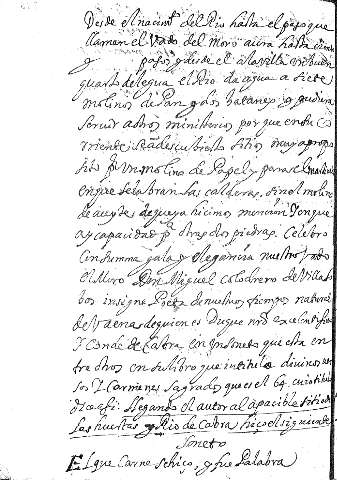 Desde el nacimto del Rio hasta el paso que
llaman el Vado del Moro aura hasta
y pasos y desde el a la Villa un buen
quarto de legua el Rio da agua a siete
molinos de Pan y dos batanes y pudiera
seruir a otros ministerios porque en su co
rriente se a descubierto sitios muy a propo
sito pa Vn molino de Papel y para el martinete
en que se labran las calderas. sin el molino
de azeyte de que ya hicimos mencion Tenque
ay capacidad pa otras dos piedras. Celebro
con summa gala y elegancia nuestro Vado
el Moro Don Miguel Colodrero de Villalo
bos insigne Poeta de nuestros tiempos natural
de Vaena de quien es Duque nro exceلentissimo
Y Conde de Cabra en Vn soneto que esta en
tre otros en su libro que intitula divinos ver
sos Y Carmenes Sagrados que es el 64 cuio titulo
dice assi: llegando el autor al apacible sitio de
las huertas y Rio de Cabra hico el siguiente
Soneto
El que Carne se hiço, y fue Palabra